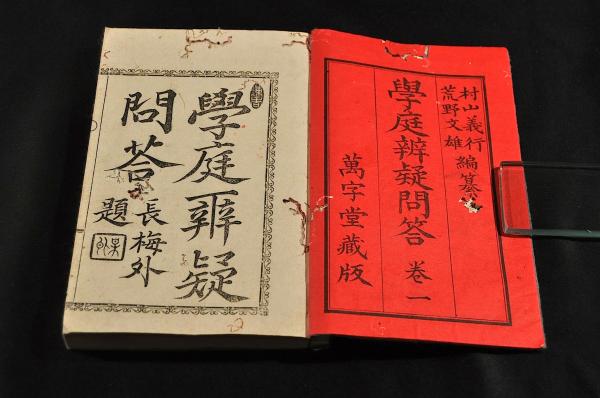 村山義行
荒野文雄
編纂
學庭辨疑問答 卷一
萬字堂藏版
學庭辨疑
問荅
長梅外
題